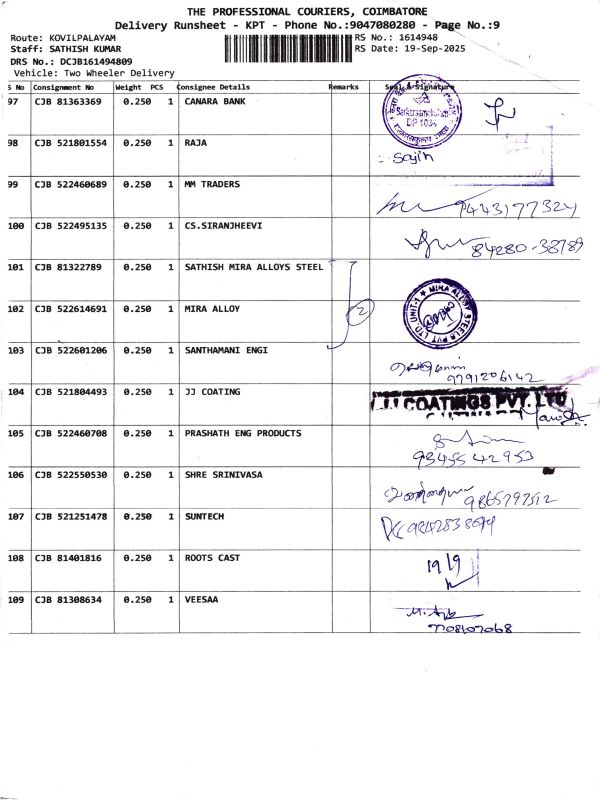 THE PROFESSIONAL COURIERS, COIMBATORE
Delivery Runsheet - KPT - Phone No.:9047080280 - Page No.:9
Route: KOVILPALAYAM
RS No.: 1614948
Staff: SATHISH KUMAR
RS Date: 19-Sep-2025
DRS No.: DCJB161494809
Vehicle: Two Wheeler Delivery
S No Consignment No Weight PCS Consignee Details Remarks Seal & Signature
97 CJB 81363369 0.250 1 CANARA BANK
98 CJB 521801554 0.250 1 RAJA
Sajin
99 CJB 522460689 0.250 1 MM TRADERS
9443177324
100 CJB 522495135 0.250 1 CS.SIRANJHEEVI
84280-38789
101 CJB 81322789 0.250 1 SATHISH MIRA ALLOYS STEEL
102 CJB 522614691 0.250 1 MIRA ALLOY
2
MIRA ALLOY STEELS PVT LTD. UNIT-1
103 CJB 522601206 0.250 1 SANTHAMANI ENGI
9791206142
104 CJB 521804493 0.250 1 JJ COATING
JJ COATINGS PVT. LTD
105 CJB 522460708 0.250 1 PRASHATH ENG PRODUCTS
93455 42953
106 CJB 522550530 0.250 1 SHRE SRINIVASA
9865797512
107 CJB 521251478 0.250 1 SUNTECH
108 CJB 81401816 0.250 1 ROOTS CAST
19/9
109 CJB 81308634 0.250 1 VEESAA